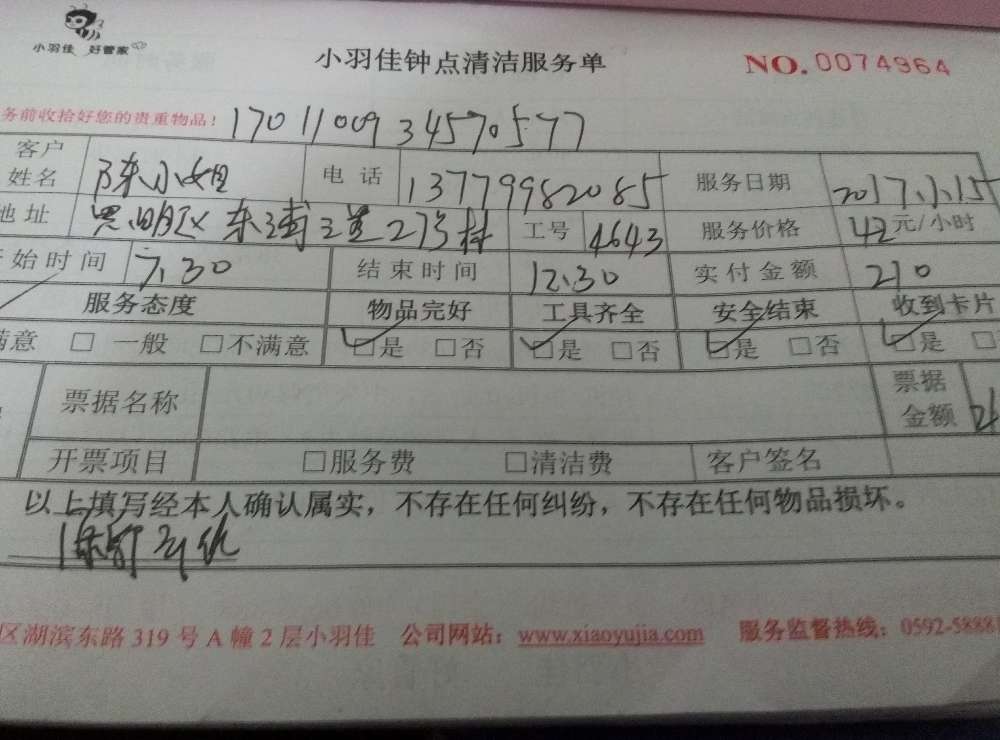 小羽佳 好管家
小羽佳钟点清洁服务单 NO. 0074964
务前收拾好您的贵重物品! 1701100934570577
客户姓名 陈小姐 电话 13779982085 服务日期 2017.1.15
地址 思明区东浦 工号 4643 服务价格 42元/小时
始时间 7.30 结束时间 12.30 实付金额 210
服务态度 物品完好 工具齐全 安全结束 收到卡片
满意 □ 一般 □不满意 □是 □否 □是 □否 □是 □否 □是 □
票据名称 票据金额
开票项目 □服务费 □清洁费 客户签名
以上填写经本人确认属实，不存在任何纠纷，不存在任何物品损坏。
区湖滨东路319号A幢2层小羽佳 公司网站：www.xiaoyujia.com 服务监督热线：0592-5888